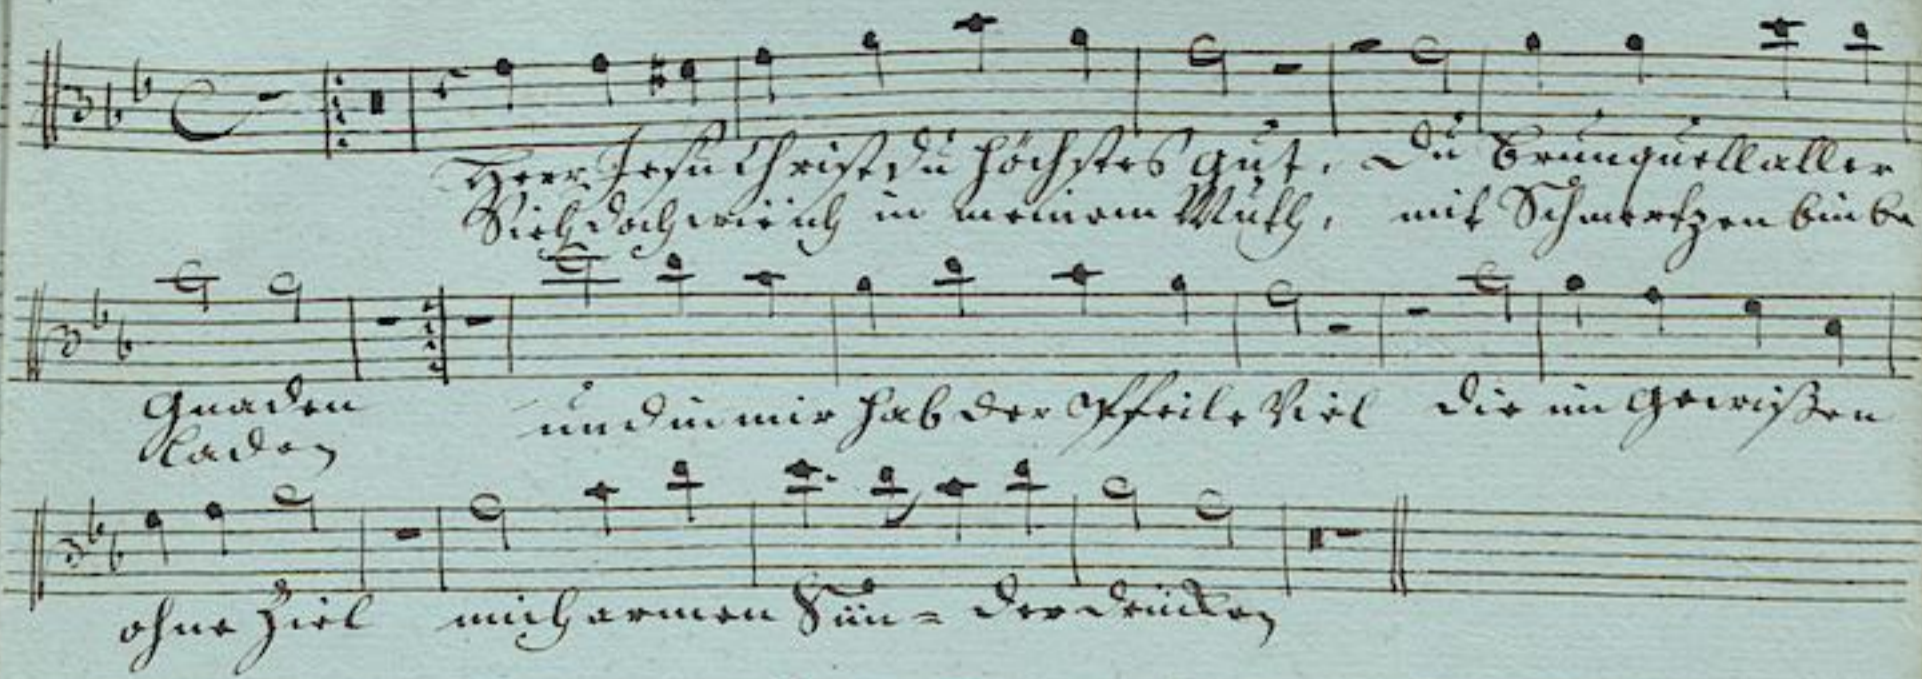 Herr Jesu Christ du höchstes gut, Du brunquell aller
Sieh doch wie ich in meinem Muth, mit Schmertzen bin be
Gnaden und in mir hab der Pfeile Viel die im gewißen
laden
ohne Ziel mich armen Sün= der drücken